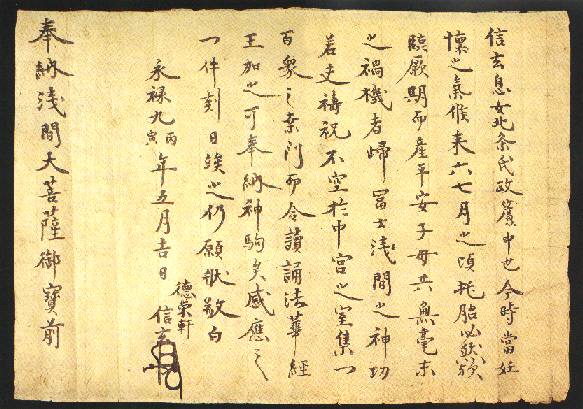 信玄息女北条氏政簾中也今時當妊
懐之氣候来六七月之頃托胎必然
臨厥期而産平安子母共無毫末
之禍機者歸冨士淺間之神功
若夫禱祝不空於中宮之室集一
百衆之桑門而令讀誦法華経
王加之可奉納神駒矣感應之
一件刻日竢之仍願状敬白
永禄九丙寅年五月吉日
徳榮軒
信玄
奉納淺間大菩薩御寶前